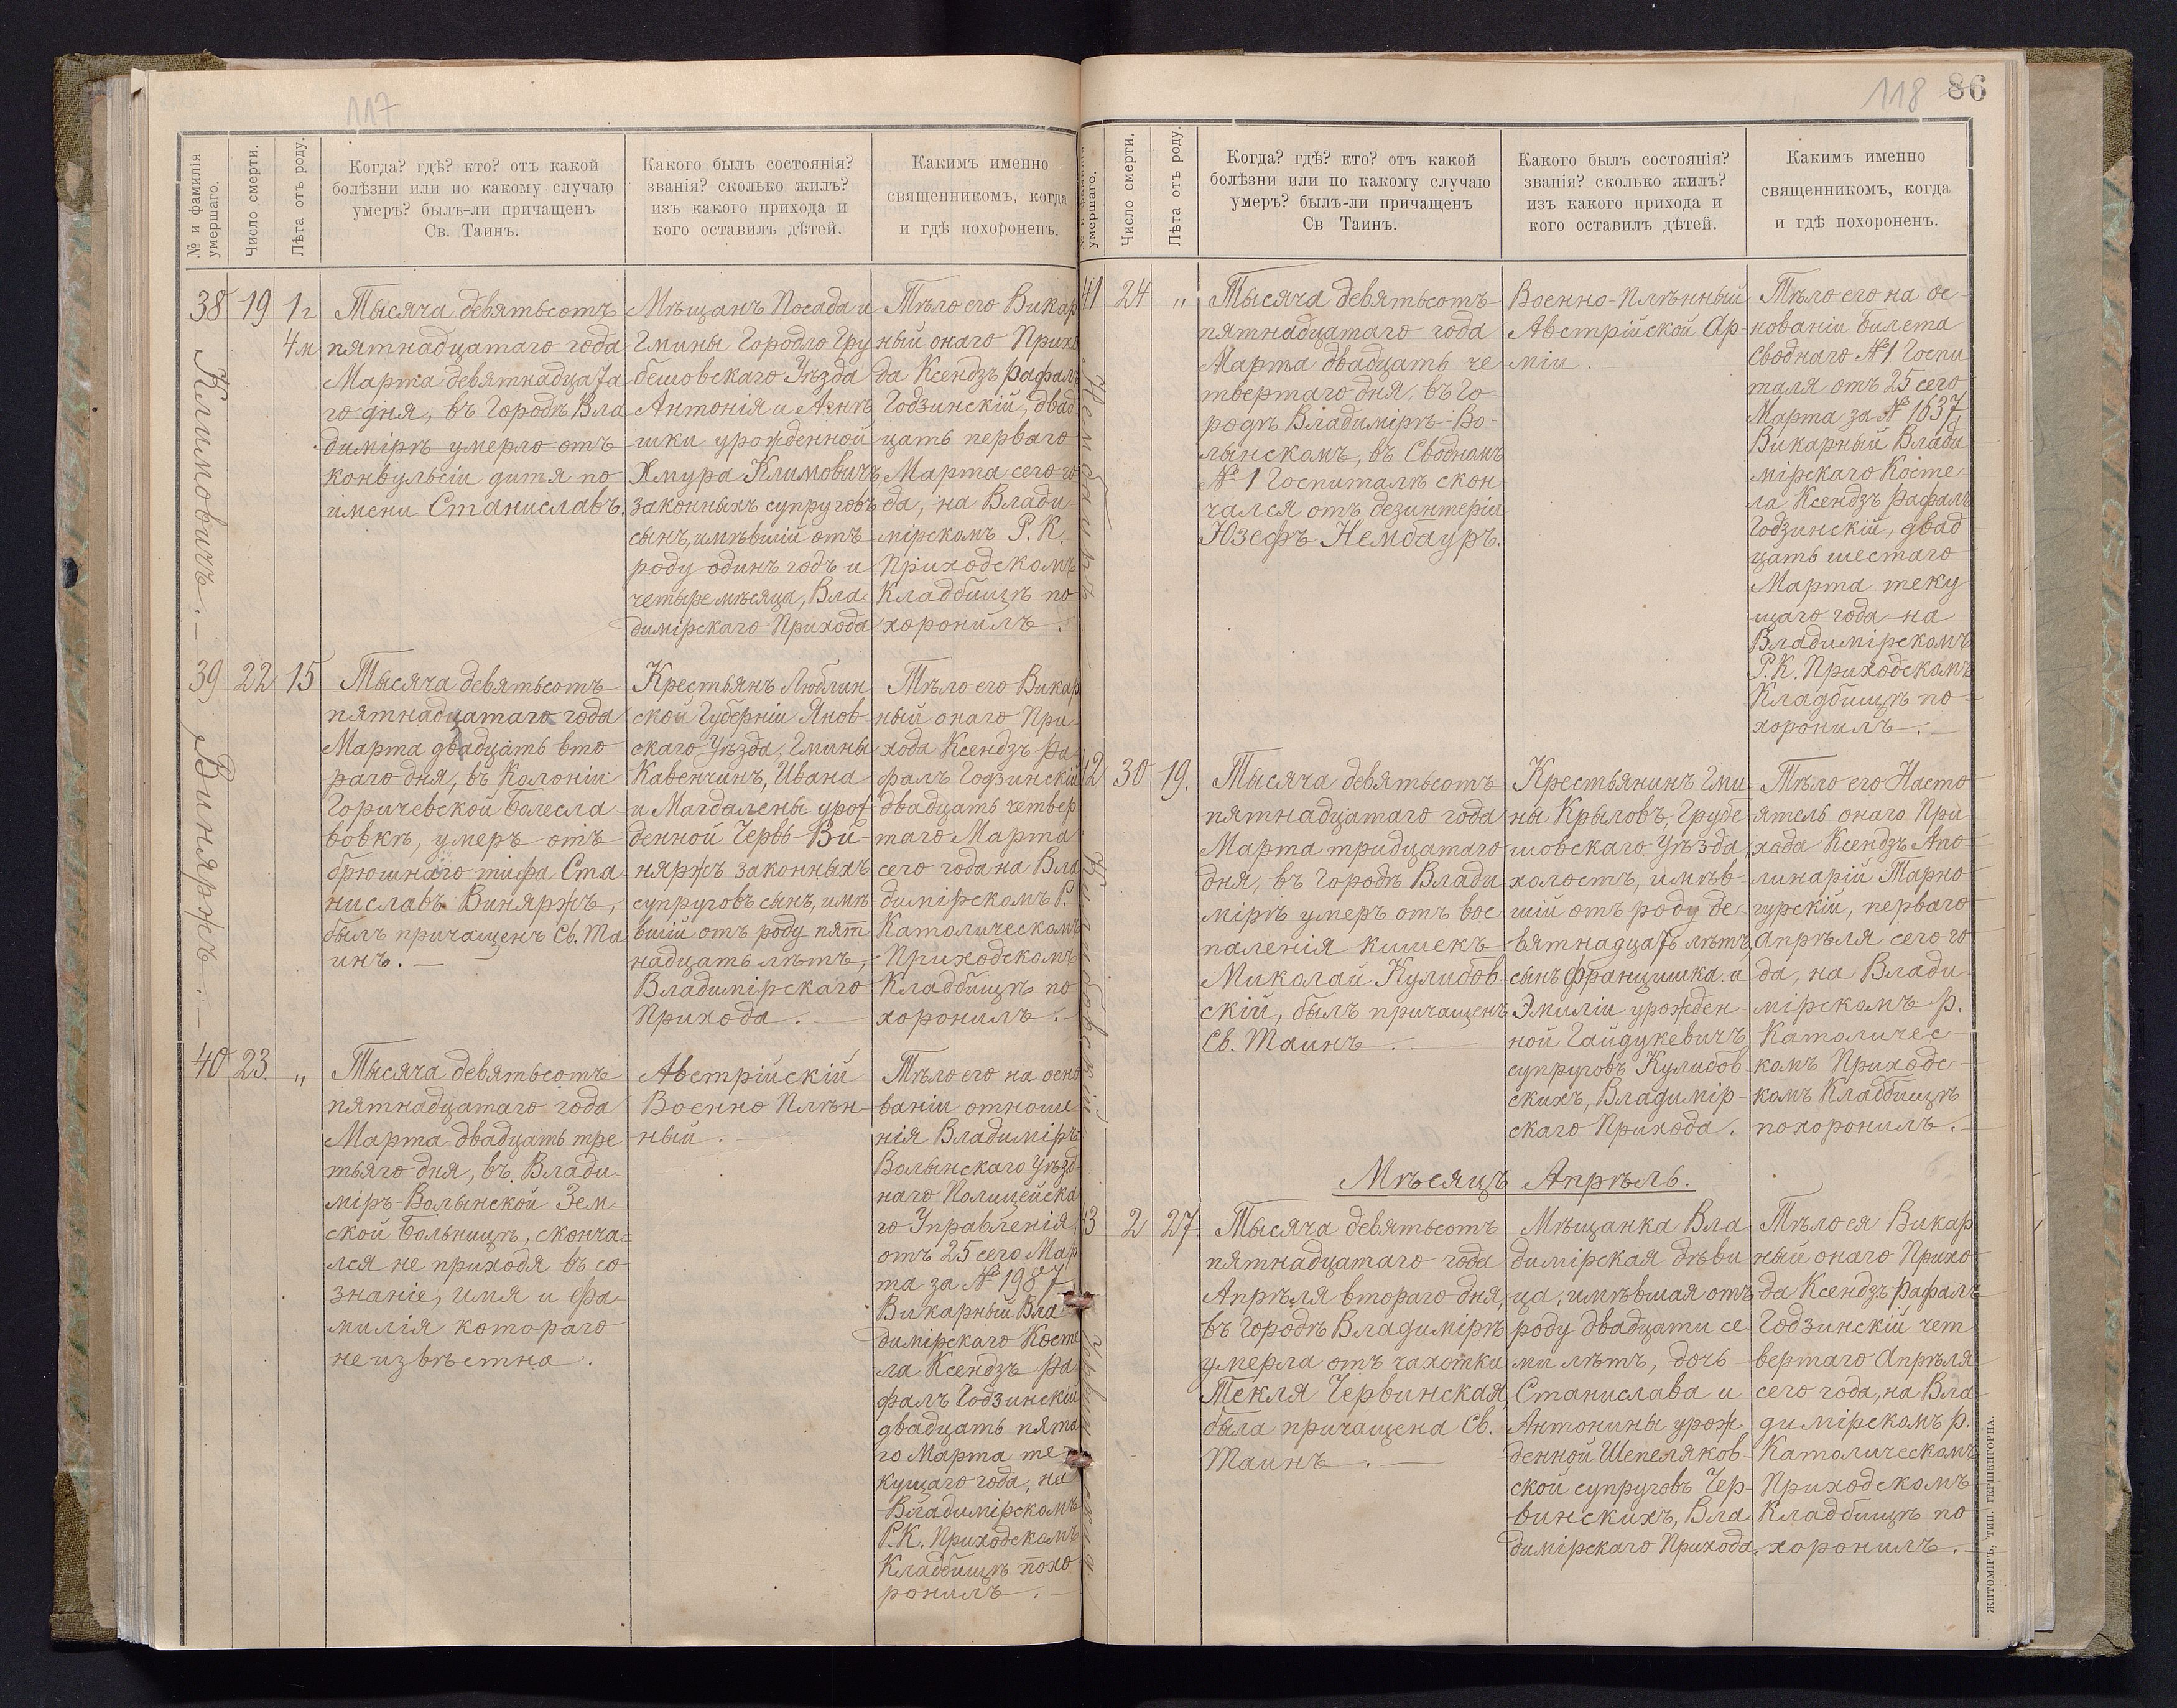 117
№ и фамилія умершаго.
Число смерти.
Лѣта отъ роду.
Когда? гдѣ? кто? отъ какой
болѣзни или по какому случаю
умеръ? былъ-ли причащенъ
Св. Таинъ.
Какого былъ состоянія?
званія? сколько жилъ?
изъ какого прихода и
кого оставилъ дѣтей.
Какимъ именно
священникомъ, когда
и гдѣ похороненъ.
38
Климовичъ.
19
1 г
4 м
Тысяча девятьсотъ
пятнадцатаго года
Марта девятнадцата
го дня, въ Городѣ Вла
димірѣ умерло отъ
конвульсіи дитя по
имени Станиславъ.
Мѣщанъ Посада и
Гмины Городло Гру
бешовскаго Уѣзда
Антонія и Аннѣ
шки урожденной
Хмура Климовичъ
законныхъ супруговъ
сынъ, имѣвшій отъ
роду одинъ годъ и
четыре мѣсяца, Вла
димірскаго Прихода
Тѣло его Викар
ный онаго Прихо
да Ксендзъ Рафалъ
Годзинскій, двад
цать перваго
Марта сего го
да, на Влади
мірскомъ Р. К.
Приходскомъ
Кладбищѣ по
хоронилъ.
39
Виняржъ.
22
15
Тысяча девятьсотъ
пятнадцатаго года
Марта двадцать вто
раго дня, въ Колоніи
Горичевской Болесла
вовкѣ, умеръ отъ
брюшнаго тифа Ста
ниславъ Виняржъ,
былъ причащенъ Св. Та
инъ.
Крестьянъ Люблин
ской Губерніи Янов
скаго Уѣзда, Гмины
Кавенчинъ, Ивана
и Магдалены урож
денной Червь-Ви-
няржъ законныхъ
супруговъ сынъ, имѣ
вшій отъ роду пят
надцать лѣтъ,
Владимірскаго
Прихода.
Тѣло его Викар
ный онаго При
хода Ксендзъ Ра
фалъ Годзинскій
двадцать четвер
таго Марта
сего года на Вла
димірскомъ Р.
Католическомъ
Приходскомъ
Кладбищѣ по
хоронилъ.
40
23.
"
Тысяча девятьсотъ
пятнадцатаго года
Марта двадцать тре
тьяго дня, въ Влади
міръ-Волынской Зем
ской Больницѣ, сконча
лся не приходя въ со
знаніе, имя и фа
милія котораго
неизвѣстна.
Австрійскій
Военно Плѣн
ный.
Тѣло его на осно
ваніи отноше
нія Владиміръ
Волынскаго Уѣзд
наго Полицейска
го Управленія,
отъ 25 сего Мар
та за № 1987
Викарный Вла
димірскаго Косте
ла Ксендзъ Ра
фалъ Годзинскій
двадцать пята
го Марта те
кущаго года, на
Владимірскомъ
Р. К. Приходскомъ
Кладбищѣ похо
ронилъ.
118 86
умершаго.
Число смерти.
Лѣта отъ роду.
Когда? гдѣ? кто? отъ какой
болѣзни или по какому случаю
умеръ? былъ-ли причащенъ
Св Таинъ.
Какого былъ состоянія?
званія? сколько жилъ?
изъ какого прихода и
кого оставилъ дѣтей.
Какимъ именно
священникомъ, когда
и гдѣ похороненъ.
41
24
"
Тысяча девятьсотъ
пятнадцатаго года
Марта двадцать че
твертаго дня, въ Го
родѣ Владимірѣ-Во-
лынскомъ, въ Сводномъ
№ 1 Госпиталѣ скон
чался отъ дезинтеріи
Юзефъ Нембауръ.
Военно-Плѣнный
Австрійской Ар-
міи.
Тѣло его на ос-
нованіи билета
Своднаго № 1 Госпи
таля отъ 25 сего
Марта за № 1637,
Викарный Влади
мірскаго Косте
ла Ксендзъ Рафалъ
Годзинскій, двад
цать шестаго
Марта теку
щаго года на
Владимірскомъ
Р. К. Приходскомъ
Кладбищѣ по-
хоронилъ.
42
30
19.
Тысяча девятьсотъ
пятнадцатаго года
Марта тридцатаго
дня, въ Городѣ Влади
мірѣ умеръ отъ вос
паленія кишекъ
Миколай Кулибов-
скій, былъ причащенъ
Св. Таинъ.
Крестьянинъ Гми-
ны Крыловъ, Грубе
шовскаго Уѣзда,
холостъ, имѣв-
шій отъ роду де-
вятнадцать лѣтъ,
сынъ Францишка и
Эмиліи урожден
ной Гайдукевичъ
супруговъ Кулибов-
скихъ, Владимір-
скаго Прихода.
Тѣло его Насто
ятель онаго При
хода Ксендзъ Апо-
линарій Тарно
гурскій, перваго
Апрѣля сего го
да, на Влади
мірскомъ Р.
Католичес-
комъ Приходс-
комъ Кладбищѣ
похоронилъ.
Мѣсяцъ Апрѣль.
43
2
27
Тысяча девятьсотъ
пятнадцатаго года
Апрѣля втораго дня,
въ Городѣ Владимірѣ
умерла отъ чахотки
Текля Червинская,
была причащена Св.
Таинъ.
Мѣщанка Вла
димірская дѣви
ца, имѣвшая отъ
роду двадцати се
ми лѣтъ, дочь
Станислава и
Антонины урож
денной Шепеляков-
ской супруговъ Чер-
винскихъ, Вла
димірскаго Прихода.
Тѣло ея Викар
ный онаго Прихо
да Ксендзъ Рафалъ
Годзинскій чет
вертаго Апрѣля
сего года, на Вла
димірскомъ Р.
Католическомъ
Приходскомъ
Кладбищѣ по
хоронилъ.
ЖИТОМІРЪ, ТИП. ГЕРШЕНГОРНА.